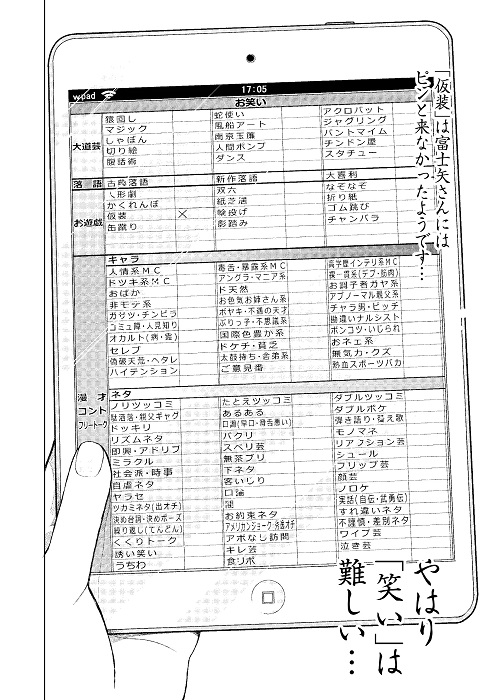 「仮装」は富士矢さんには
ピンと来なかったようです…
wpad 17:05
お笑い
大道芸
猿回し 蛇使い アクロバット
マジック 風船アート ジャグリング
しゃぼん 南京玉簾 パントマイム
切り絵 人間ポンプ チンドン屋
腹話術 ダンス スタチュー
落語 古典落語 新作落語 大喜利
お遊戯
人形劇 双六 なぞなぞ
かくれんぼ 紙芝居 折り紙
仮装 × 輪投げ ゴム跳び
缶蹴り 影踏み チャンバラ
漫才
コント
フリートーク
キャラ
人情系MC 毒舌・暴露系MC 高学歴インテリ系MC
ドツキ系MC アングラ・マニア系 裸一貫系(デブ・筋肉)
おばか ド天然 お調子者ガヤ系
非モテ系 お色気お姉さん系 アブノーマル親父系
ガサツ・チンピラ ボヤキ・不遇の天才 チャラ男・ビッチ
コミュ障・人見知り ぶりっ子・不思議系 勘違いナルシスト
オカルト(病・霊) 国際色豊か系 ポンコツ・いじられ
セレブ ドケチ・貧乏 おネエ系
偽破天荒・ヘタレ 太鼓持ち・舎弟系 無気力・クズ
ハイテンション ご意見番 熱血スポーツバカ
ネタ
ノリツッコミ たとえツッコミ ダブルツッコミ
駄洒落・親父ギャグ あるある ダブルボケ
ドッキリ 口調(早口・滑舌悪い) 弾き語り・替え歌
リズムネタ パクリ モノマネ
即興・アドリブ スベリ芸 リアクション芸
ミラクル 無茶ブリ シュール
社会派・時事 下ネタ フリップ芸
自虐ネタ 客いじり 顔芸
ヤラセ 口論 ノロケ
ツカミネタ(出オチ) 謎 実話(自伝・武勇伝)
決め台詞・決めポーズ お約束ネタ すれ違いネタ
繰り返し(てんどん) アメリカンジョーク・外国オチ 不謹慎・差別ネタ
くくりトーク アポなし訪問 ワイプ芸
誘い笑い キレ芸 泣き芸
うちわ 食リポ
やはり
「笑い」は
難しい…